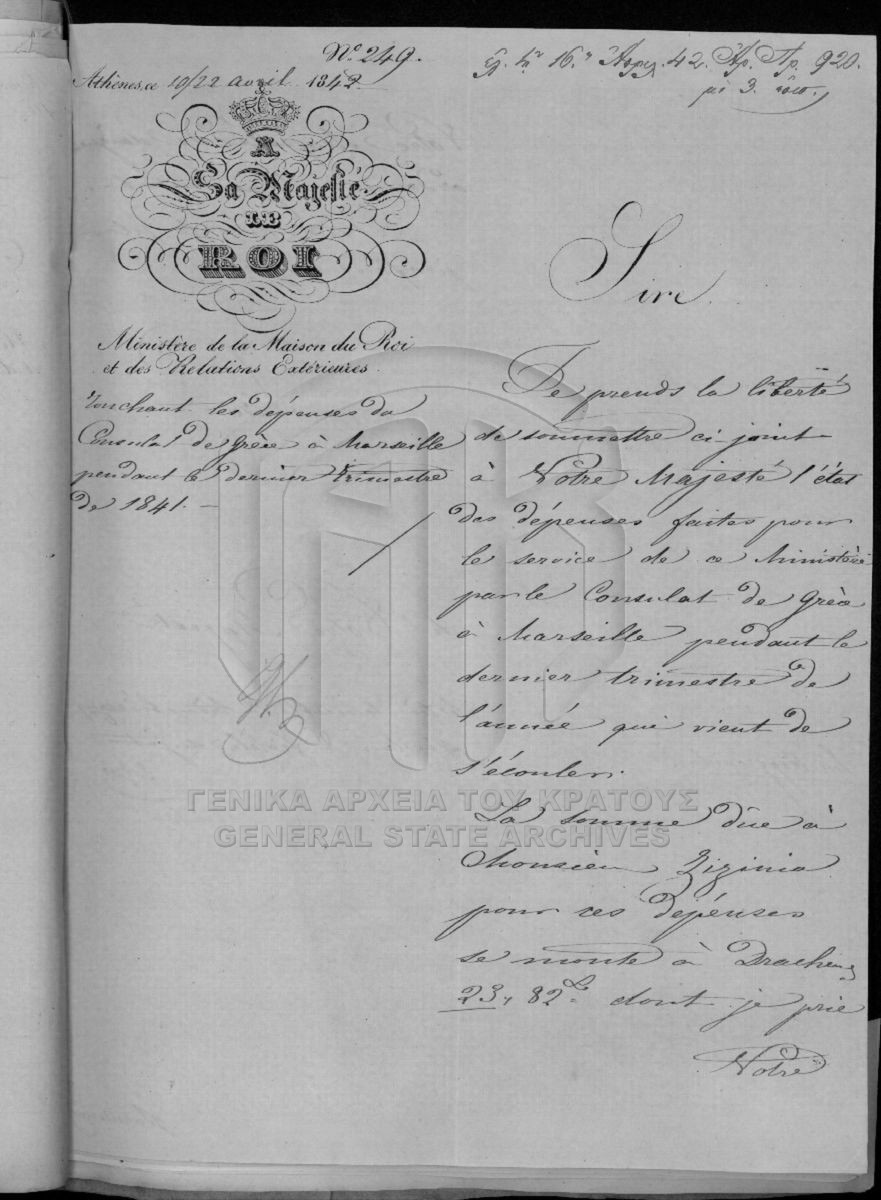 Nº 249.
Athènes, ce 10/22 avril 1842
16 42. Αρ. Πρ. 920.
3.
A
Sa Majesté
LE
ROI
Ministère de la Maison du Roi
et des Relations Extérieures.
Touchant les dépenses du
Consulat de Grèce à Marseille
pendant le dernier trimestre
de 1841. —
Sire
Je prends la liberté
de soumettre ci-joint
à Votre Majesté l'état
des dépenses faites pour
le service de ce Ministère
par le Consulat de Grèce
à Marseille pendant le
dernier trimestre de
l'année qui vient de
s'écouler.
La somme dûe à
Monsieur Zizinia
pour ces dépenses
se monte à Drachm
23, 82 dont je prie
Votre
ΓΕΝΙΚΑ ΑΡΧΕΙΑ ΤΟΥ ΚΡΑΤΟΥΣ
GENERAL STATE ARCHIVES